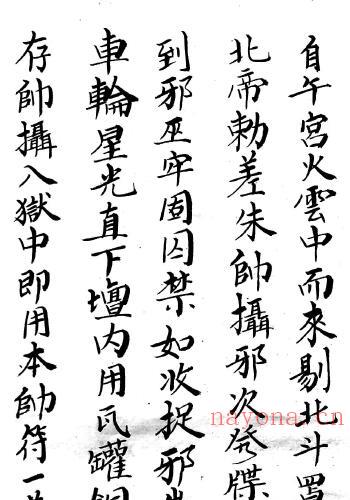 自午宮火雲中而來剔北斗罡
北帝勅差朱帥攝邪次発牒
到邪巫牢固囚禁如收捉邪
車輪星光直下壇内用瓦罐
存帥攝入獄中即用本帥符一
nayona.cn